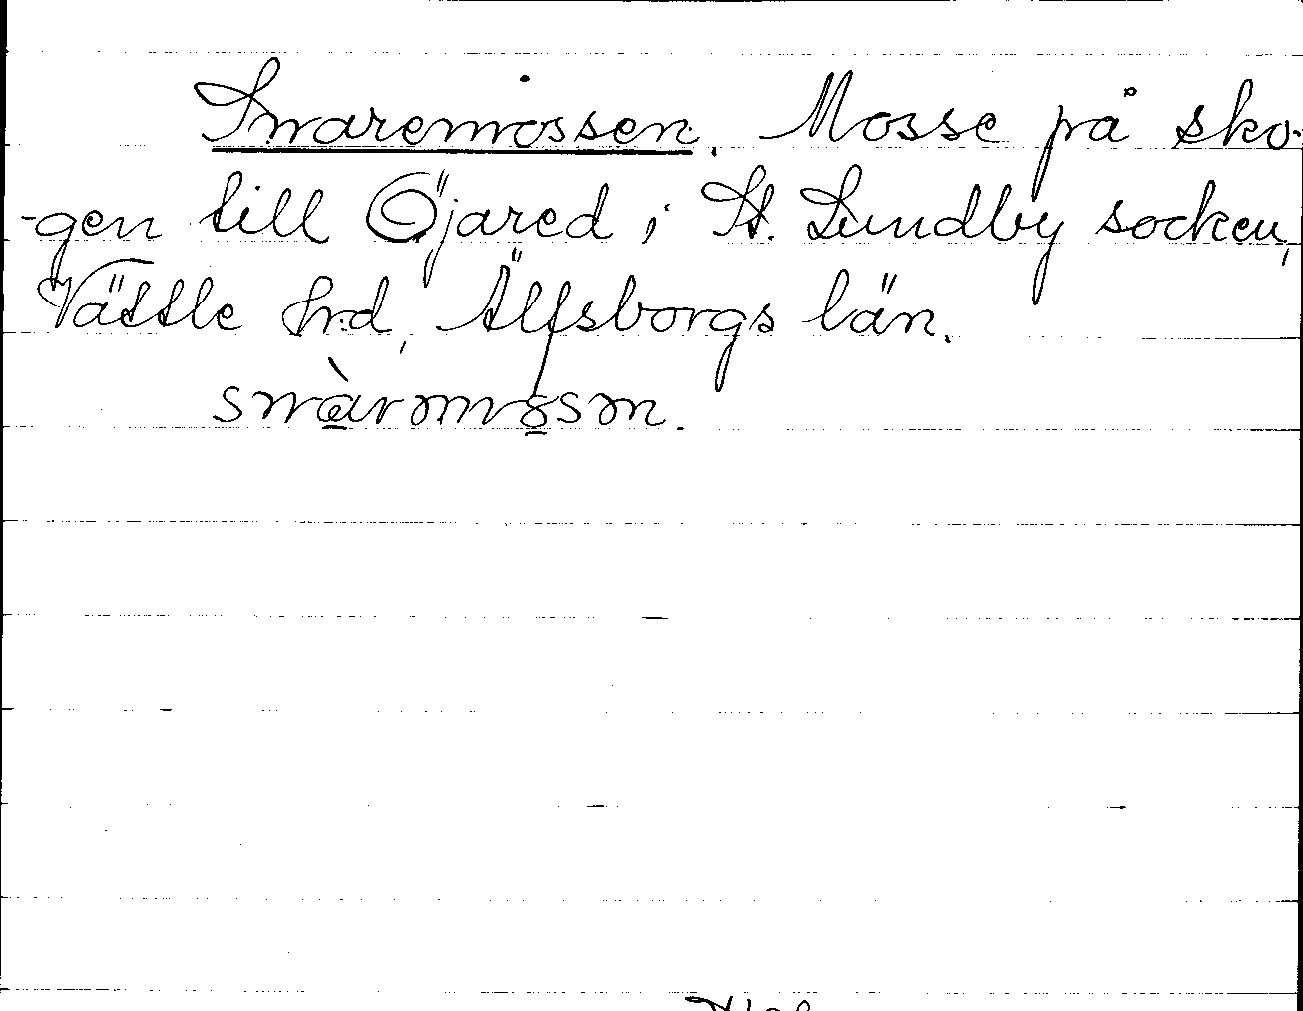 Snaremossen. Mosse på sko-
-gen till Öjared i St. Lundby socken,
Vättle hrd, Älfsborgs län.